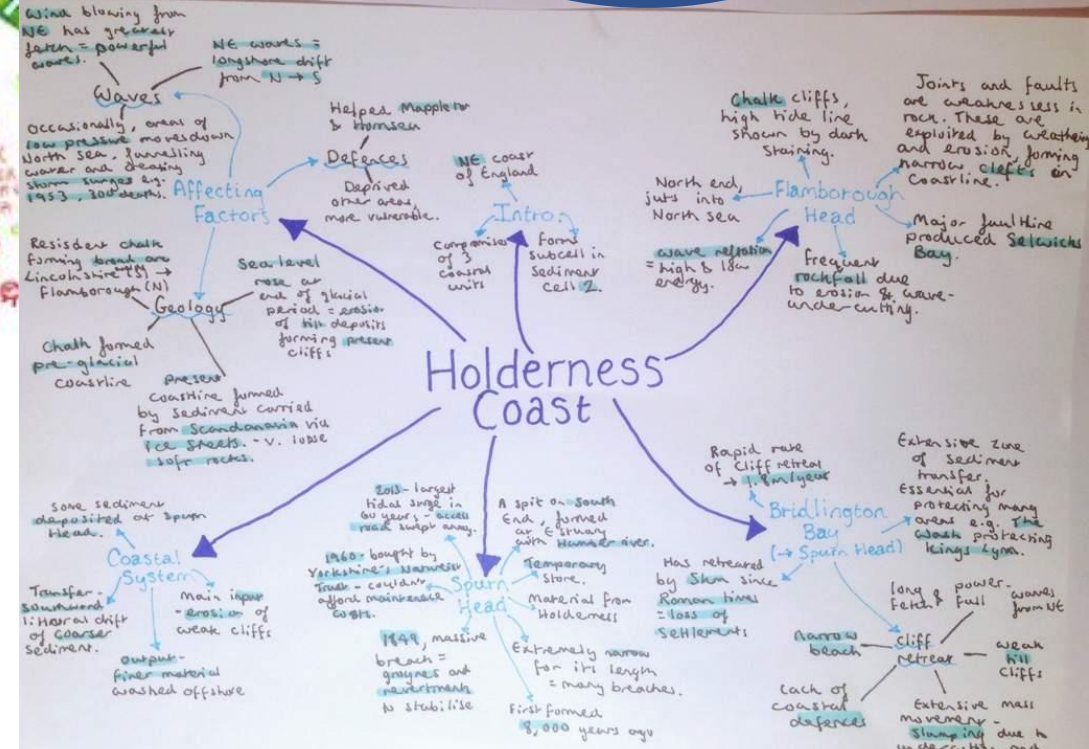 Holderness
Coast
Affecting
Factors
Waves
Wind blowing from
NE has greatest
fetch = powerful
waves.
NE waves =
longshore drift
from N → S
Occasionally, areas of
low pressure moves down
North sea, funnelling
water and creating
storm surges e.g.
1953, 300 deaths.
Defences
Helped Mappleton
& Hornsea
Deprived
other areas,
more vulnerable.
Geology
Resisdent chalk
forming broad arc
Lincolnshire →
Flamborough (N)
Sea level
rose at
end of glacial
period = erosion
of till deposits
forming present
cliffs
Chalk formed
pre-glacial
coastline
Present
coastline formed
by sediment carried
from Scandanavia via
ice sheets. - v. loose
soft rocks.
Intro:
NE coast
of England
Comprises
of 3
coastal
units
Forms
subcell in
Sediment
Cell 2.
Flamborough
Head
Chalk cliffs,
high tide line
shown by dark
staining.
Joints and faults
are weaknessess in
rock. These are
exploited by weathering
and erosion, forming
narrow clefts in
coastline.
North end,
juts into
North sea
Major faultline
produced Selwicks
Bay.
wave refration
= high & low
energy.
frequent
rockfall due
to erosion & wave-
undercutting.
Coastal
System
some sediment
deposited at Spurn
Head.
Transfer-
southward
littoral drift
of coarser
sediment.
Main input
- erosion of
weak cliffs
Output-
finer material
washed offshore
Spurn
Head
2013 - largest
tidal surge in
60 years, - access
road swept away.
A spit on South
End, formed
at Estuary
with Humber river.
1960 - bought by
Yorkshire's Naturist
Trust - couldn't
afford maintenance
costs.
Temporary
store.
Material from
Holderness
1849, massive
breach =
groynes and
revertment
to stabilise
Extremely narrow
for its length
= many breaches.
First formed
8,000 years ago
Bridlington
Bay
(→ Spurn Head)
Rapid rate
of cliff retreat
→ 1.8m/year
Extensive zone
of sediment
transfer.
Essential for
protecting many
areas e.g. The
Wash protecting
Kings Lynn.
Has retreated
by 5km since
Roman times
= loss of
settlements
cliff
retreat
long & power-
fetch full waves
from NE
Narrow
beach
weak
till
cliffs
Lack of
coastal
defences
Extensive mass
movement -
slumping due to